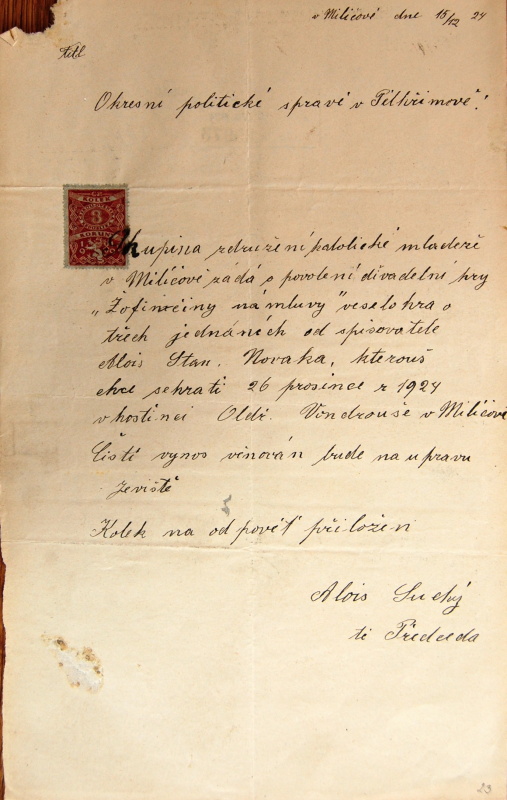 v Miličově dne 15/12 24
Titl
Okresní politické správě v Pelhřimově!
KOLEK
3
KORUNY
skupina združení katolické mladeže
v Miličově žadá o povolení divadelní hry
„Žofinčiny námluvy" veselohra o
třech jednáních od spisovatele
Alois Stan. Novaka, kterouš
chce sehrati 26 prosince r 1924
v hostinci Oldř. Vondrouše v Miličově
Čistí vynos věnován bude na upravu
jeviště
Kolek na odpověť přiložen
Alois Suchý
Předseda
23